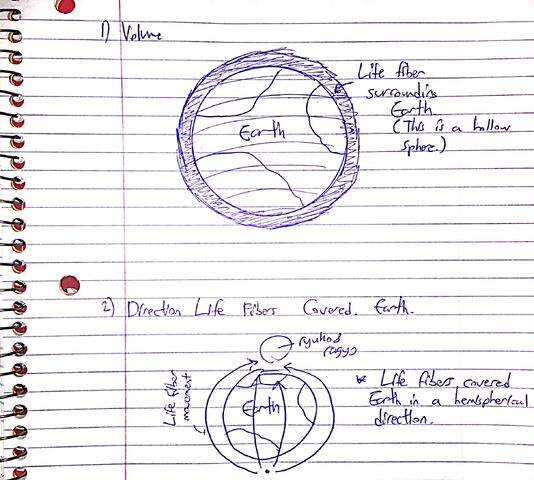 1) Volume
Life fiber
surrounding
Earth
(This is a hollow
sphere.)
Earth
2) Direction Life Fibers Covered. Earth.
ragyo
Life fiber
movement
Earth
* Life fibers covered
Earth in a hemispherical
direction.